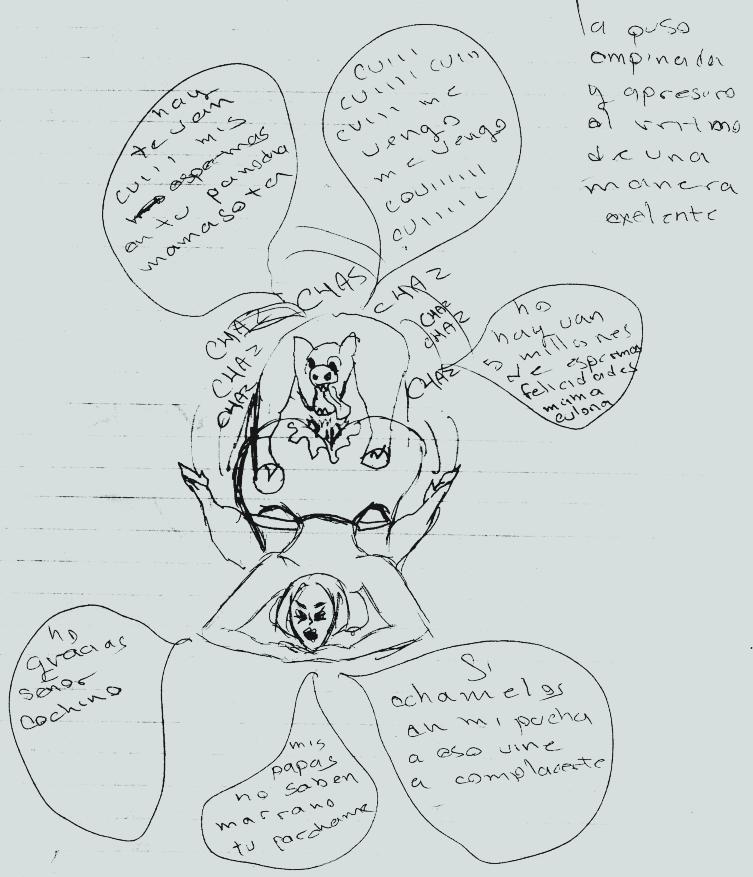 la puso
ompinada
y apresuro
el rritmo
de una
manera
exelente
cuiii
cuiiii cuin
cuiii me
vengo
me vengo
couiiiiii
cuiiiii
hay
te van
cuiii mis
espermas
en tu panocha
mamasota
CHAS
CHAZ
CHAZ
CHAZ
CHAZ
CHAZ
CHAZ
CHAZ
ho
hay van
5 millones
de espermas
felicidades
mama
culona
ho
gracias
señor
cochino
Si
echamelos
en mi
a eso vine
a complacerte
mis
papas
no saben
marrano
tu